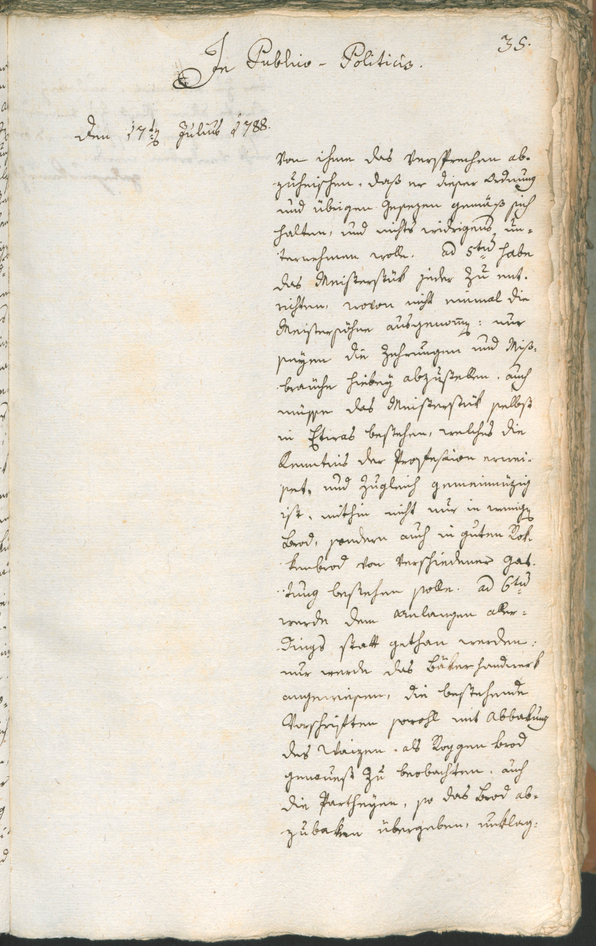 35.
In Publico-Politicis.
Den 17ten Julius 1788.
von ihme das Versprechen ab-
zuheischen, daß er dieser Ordnung
und übrigen Gesezen gemäß sich
halten, und nichts widriges un-
ternehmen wolle. ad 5tum habe
das Meisterstük jeder zu ent-
richten, wovon nicht einmal die
Meistersöhne ausgenomm: nur
seyen die Zehrungen und Miß-
bräuche hiebey abzustellen. auch
müsse das Meisterstük selbst
in Etwas bestehen, welches die
Kenntnis der Profession erwei-
set, und zugleich gemeinnüzig
ist, mithin nicht nur in
Brod, sondern auch in guten Rok-
kenbrod von verschiedener Gat-
tung bestehen solle. ad 6tum
werde dem Anlangen aller-
dings statt gethan werden:
nur werde das Bäkerhandwerk
angewiesen, die bestehende
Vorschriften sowohl mit Abbakung
des Waizen- als Roggen Brod
genauest zu beobachten, auch
die Partheyen, so das Brod ab-
zubaken übergeben, unklag-